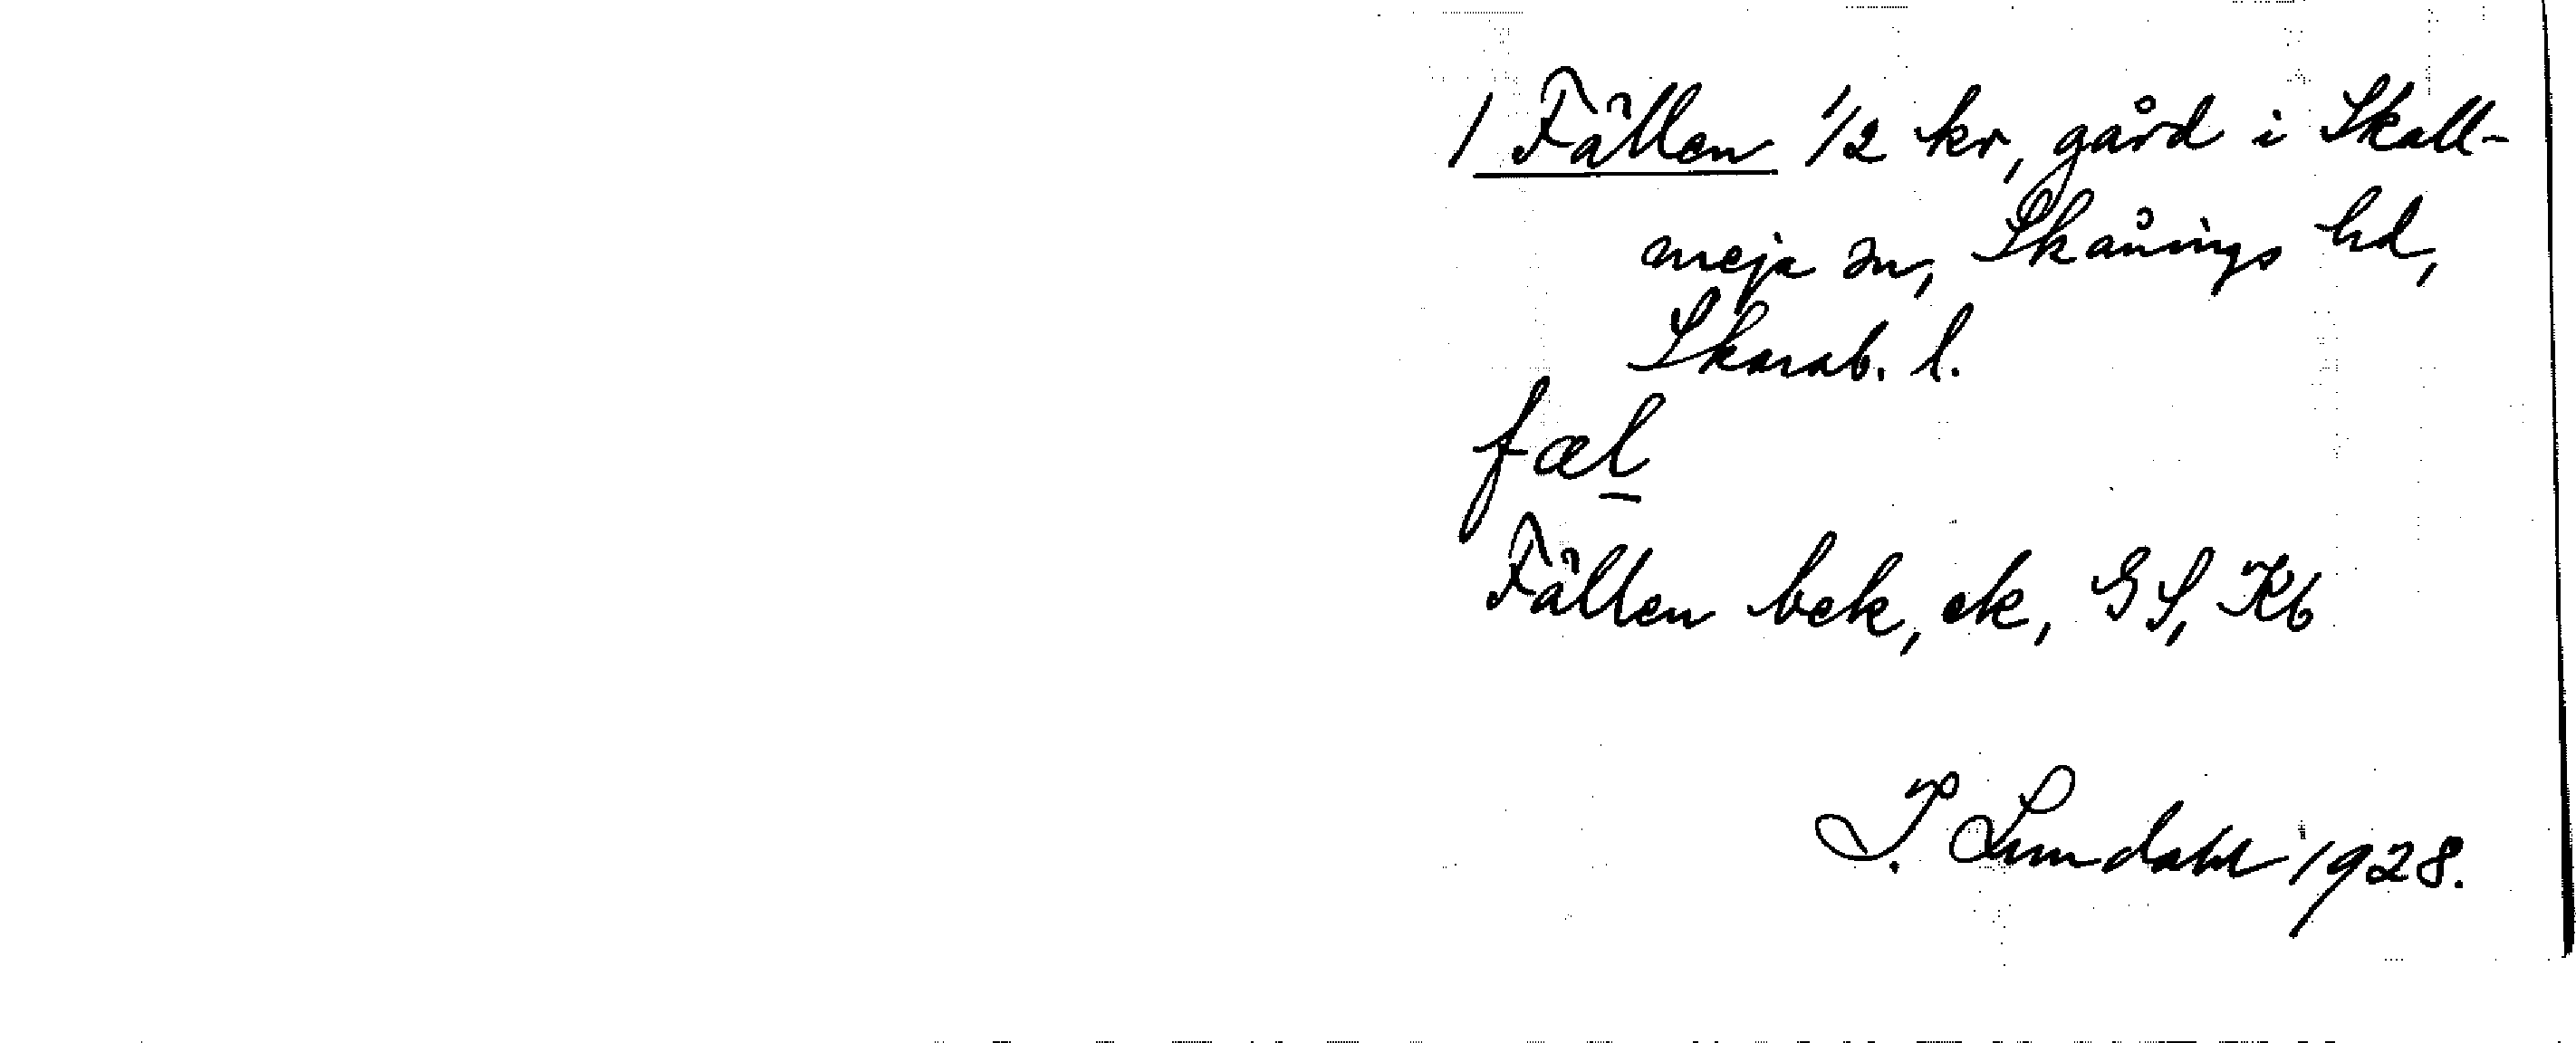 1 Fällen 1/2 kr, gård i Skall-
meja sn, Skånings hd,
Skarab. l.
fæl
Fällen bek, ek, GS, Kb
P. Lundahl 1928.